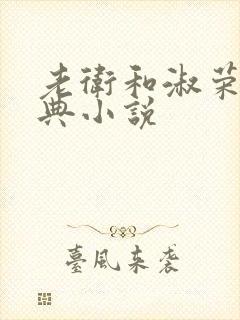 老衛和淑荣
典小説
臺風来袭